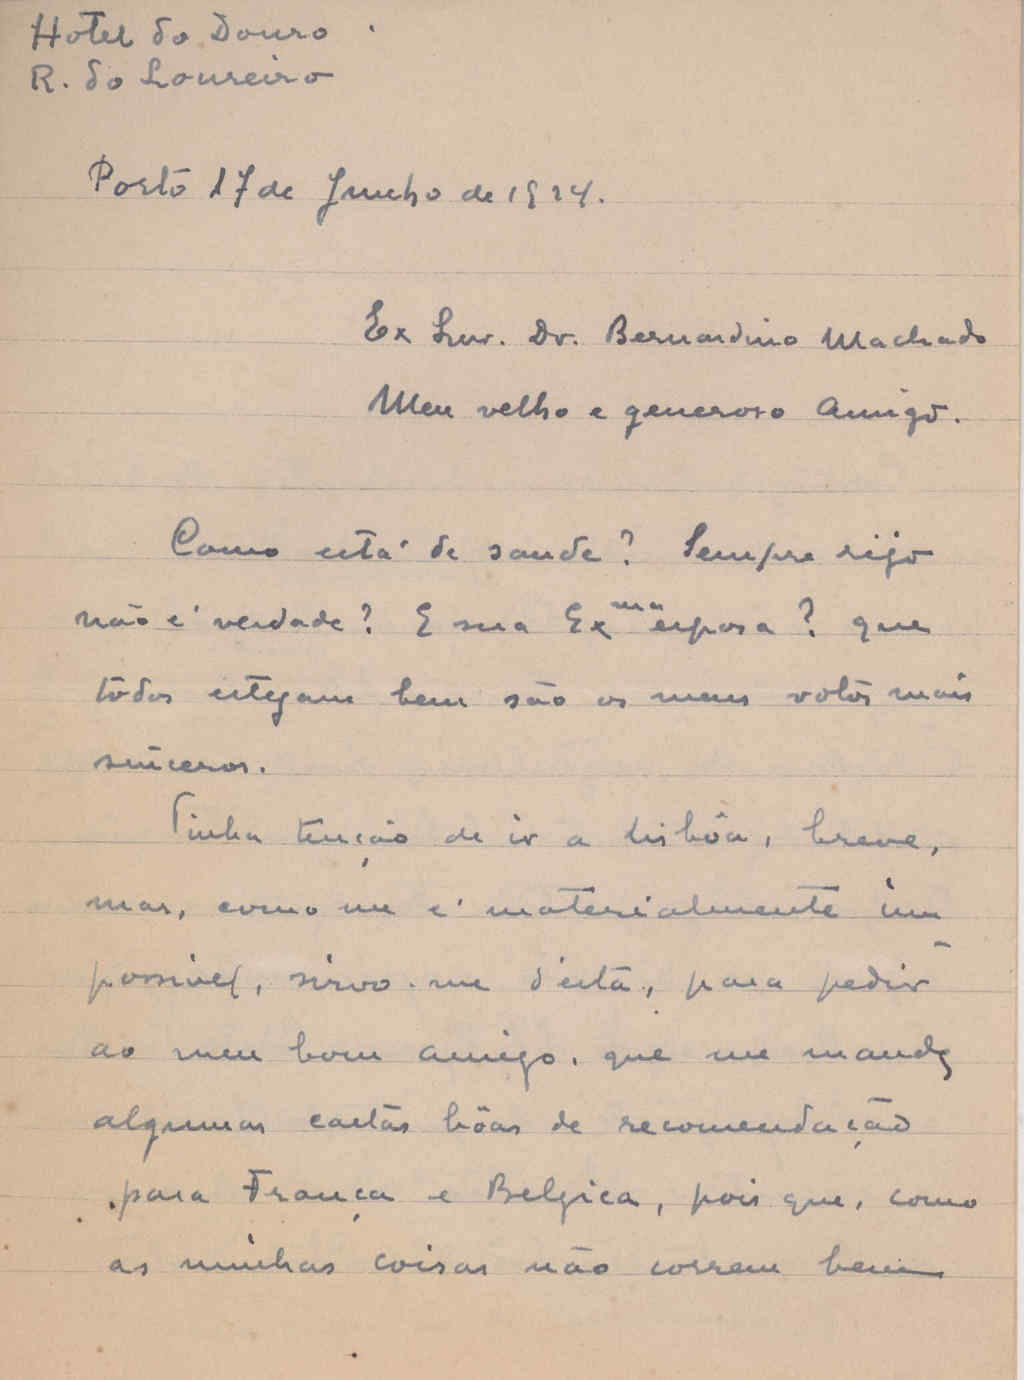 Hotel do Douro
R. do Loureiro
Porto 17 de Junho de 1924.
Ex Snr. Dr. Bernardino Machado
Meu velho e generoso Amigo.
Como está de saude? Sempre rijo
não é verdade? E sua Exma esposa? que
todos estejam bem são os meus votos mais
sinceros.
Tinha tenção de ir a Lisbôa, breve,
mas, como me é materialmente im
possivel, sirvo-me d'esta, para pedir
ao meu bom amigo, que me mande
algumas cartas bôas de recomendação
para França e Belgica, pois que, como
as minhas coisas não correm bem